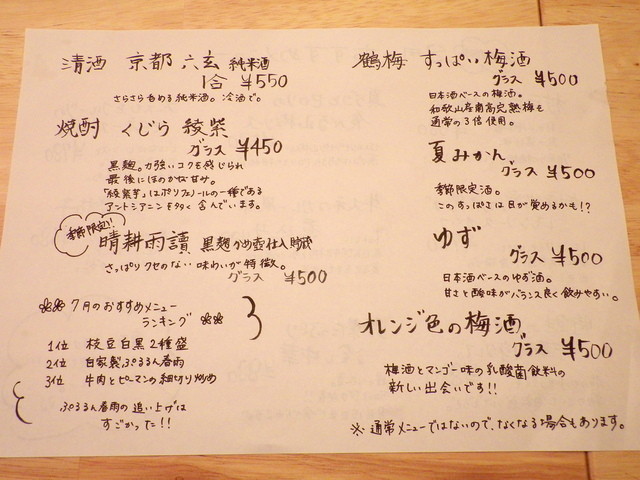 清酒 京都 六玄 純米酒
1合 ¥550
さらさら呑める純米酒。冷酒で。
焼酎 くじら 綾紫
グラス ¥450
黒麹。力強いコクを感じられ
最後にほのかな甘み。
「綾紫芋」はポリフェノールの一種である
アントシアニンを多く含んでいます。
季節限定!!
晴耕雨讀 黒麹かめ壺仕入貯蔵
さっぱりクセのない味わいが特徴。
グラス ¥500
7月のおすすめメニュー
ランキング
1位 枝豆白黒2種盛
2位 自家製ぷるるん春雨
3位 牛肉とピーマンの細切り炒め
ぷるるん春雨の追い上げは
すごかった!!
鶴梅 すっぱい梅酒
グラス ¥500
日本酒ベースの梅酒。
和歌山産南高完熟梅を
通常の3倍使用。
夏みかん
グラス ¥500
季節限定酒。
このすっぱさは目が覚めるかも!?
ゆず
グラス ¥500
日本酒ベースのゆず酒。
甘さと酸味がバランス良く飲みやすい。
オレンジ色の梅酒
グラス ¥500
梅酒とマンゴー味の乳酸菌飲料の
新しい出会いです!!
※通常メニューではないので、なくなる場合もあります。